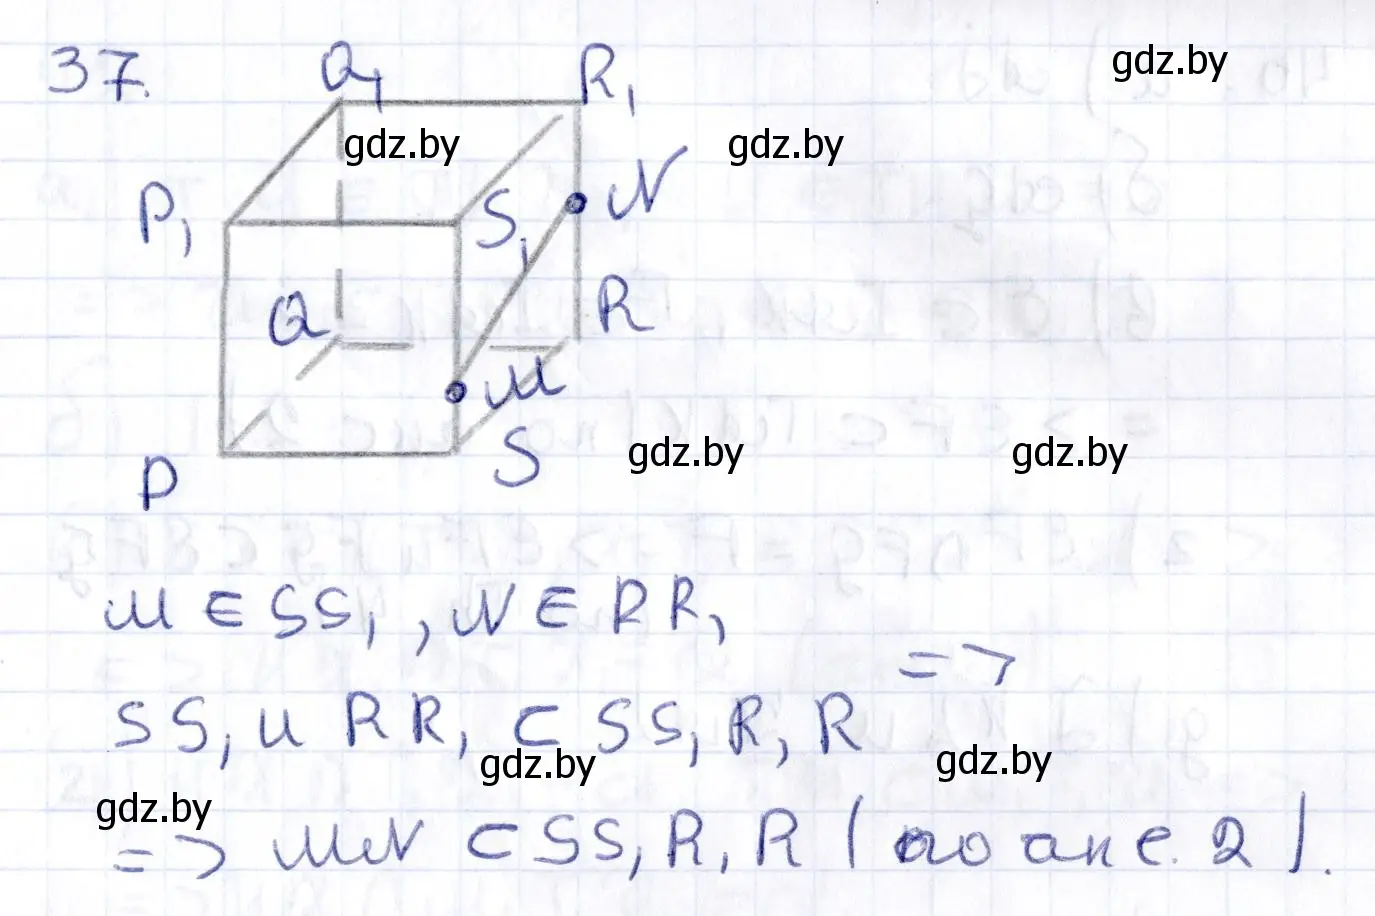 37.
Q₁ R₁ gdz.by
gdz.by gdz.by
P₁ S₁ N
Q R
M
gdz.by gdz.by
P S
M ∈ SS₁, N ∈ RR₁
=>
SS₁ и RR₁ ⊂ SS₁R₁R
gdz.by gdz.by
gdz.by
=> MN ⊂ SS₁R₁R (по акс. 2).